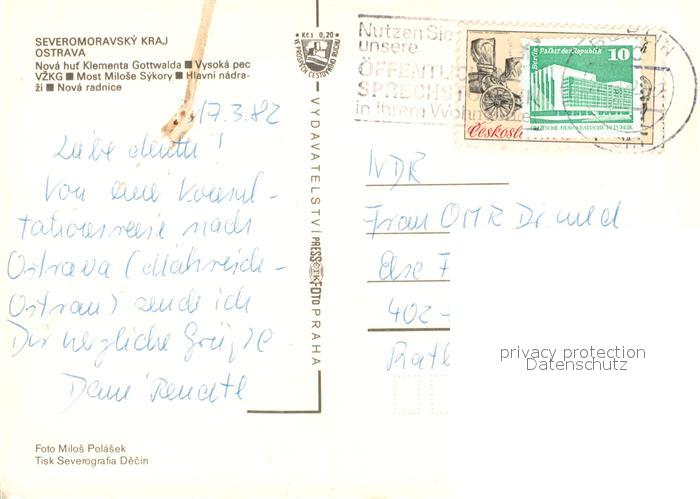 SEVEROMORAVSKÝ KRAJ
OSTRAVA
Nová huť Klementa Gottwalda ■ Vysoká pec
VŽKG ■ Most Miloše Sýkory ■ Hlavní nádra-
ží ■ Nová radnice
17.3.82
Von einer Konsul-
tationsreise nach
Ostrava (Mährisch-
Ostrau) sende ich
Dir herzliche Grüße
Deine Renate
Foto Miloš Polášek
Tisk Severografia Děčín
Kčs 0,20
VE PROSPĚCH CESTOVNÍHO RUCHU
VYDAVATELSTVÍ PRESSFOTO PRAHA
Nutzen Sie
unsere
ÖFFENTLIC
SPRECHST
in Ihrem Wohn
Berlin Palast der Republik
10
DEUTSCHE DEMOKRATISCHE REPUBLIK
Českosl
Frau OMR Dr med
Else F
402
privacy protection
Datenschutz